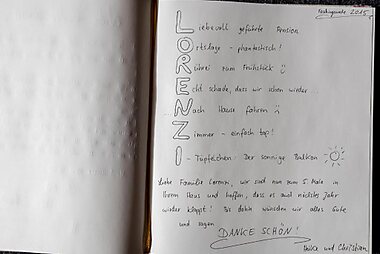 Pfingstwoche 2015
Liebevoll geführte Pension
Ortslage - phantastisch!
Rührei zum Frühstück
Echt schade, dass wir schon wieder ...
Nach Hause fahren
Zimmer - einfach top!
I - Tüpfelchen: Der sonnige Balkon
Liebe Familie Lorenzi, wir sind nun zum 5. Male in
Ihrem Haus und hoffen, dass es auch nächstes Jahr
wieder klappt! Bis dahin wünschen wir alles Gute
und sagen
DANKE SCHÖN!
und Christian